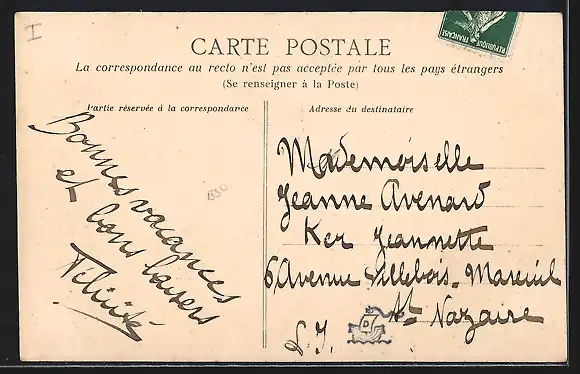 I
RÉPUBLIQUE FRANÇAISE
CARTE POSTALE
La correspondance au recto n'est pas acceptée par tous les pays étrangers
(Se renseigner à la Poste)
Partie réservée à la correspondance
Adresse du destinataire
Bonnes vacances
et bons baisers
Félicité
Mademoiselle
Jeanne Avenard
Ker Jeannette
6 Avenue Villebois-Mareuil
St Nazaire
L. I.